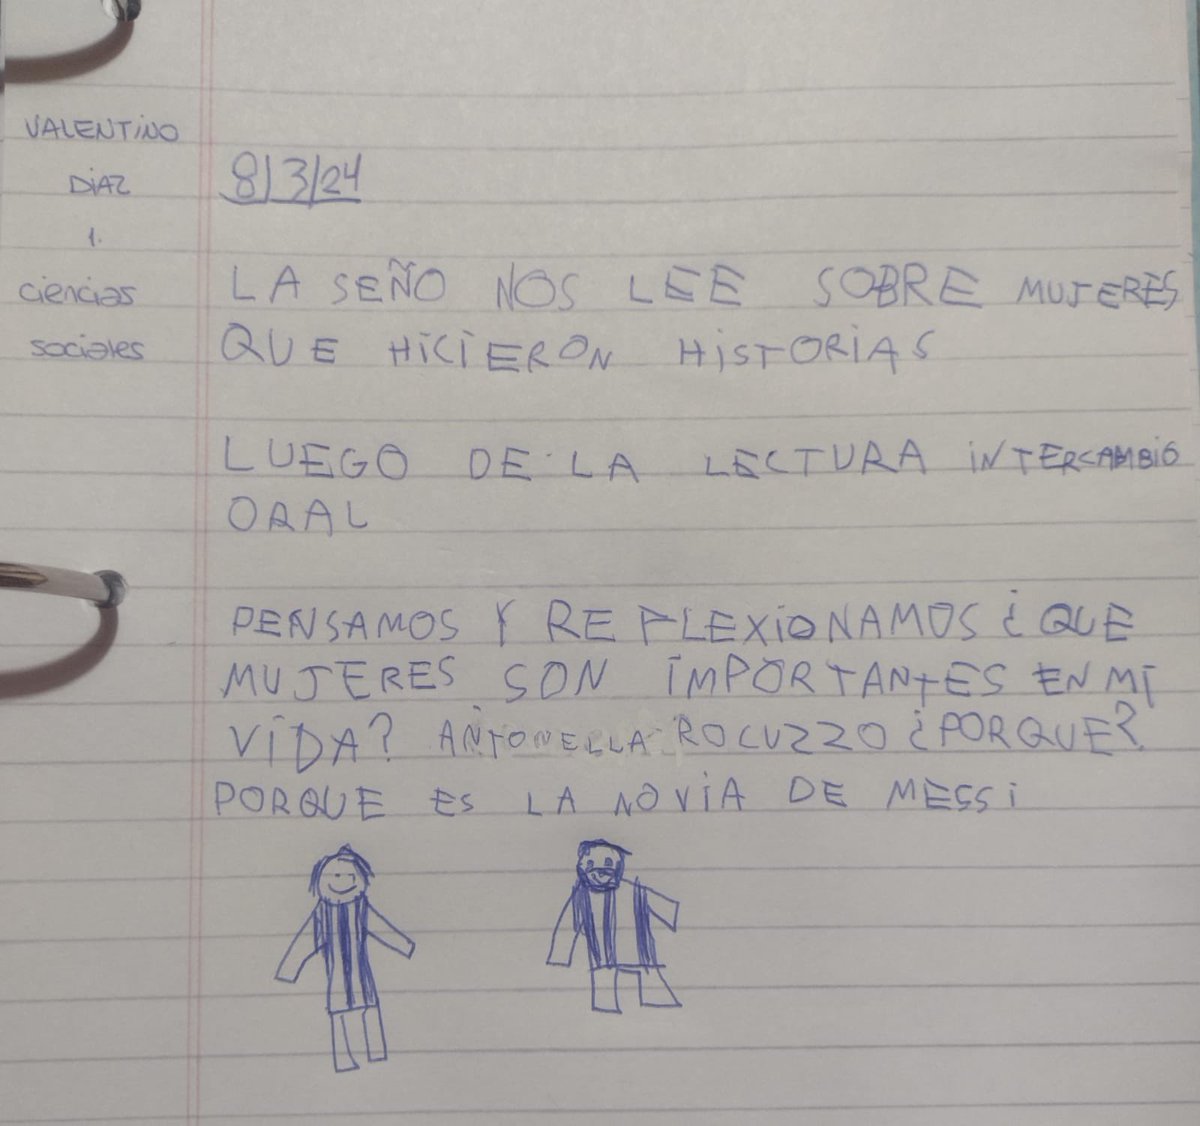 VALENTINO
DIAZ
1.
ciencias
sociales
8/3/24
LA SEÑO NOS LEE SOBRE MUJERES
QUE HICIERON HISTORIAS
LUEGO DE LA LECTURA INTERCAMBIO
ORAL
PENSAMOS Y REFLEXIONAMOS ¿QUE
MUJERES SON IMPORTANTES EN MI
VIDA? ANTONELLA ROCUZZO ¿PORQUE?
PORQUE ES LA NOVIA DE MESSI